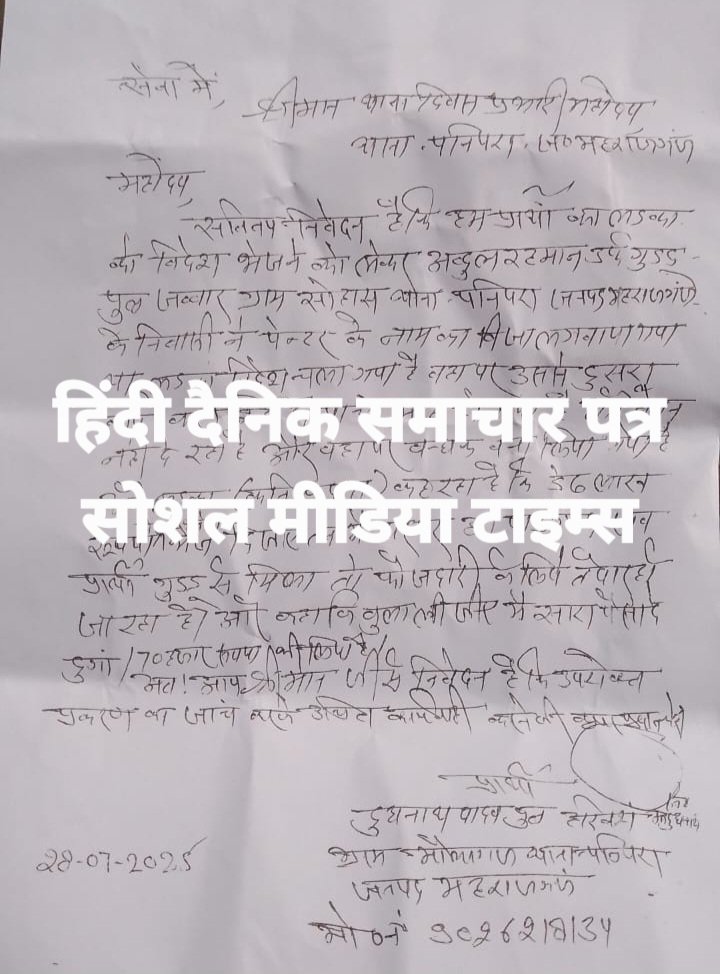 सेवा में,
श्रीमान थाना दिवस प्रभारी महोदय
थाना पनियरा, ज० महराजगंज
महोदय,
सविनय निवेदन है कि हम प्रार्थी का लड़का
को विदेश भेजने को लेकर अब्दुल रहमान उर्फ गुड्डू
पुत्र जब्बार ग्राम सोहास थाना पनियरा जनपद महराजगंज
के निवासी ने पेन्टर के नाम का विजा लगवाया गया
था लड़का विदेश चला गया है वहा पर उससे दुसरा
हिंदी दैनिक समाचार पत्र
नही दे रहे है और वहा पर बन्धक बना लिया गया है
कह रहा है कि डेढ़ लाख
सोशल मीडिया टाइम्स
प्रार्थी गुड्डू से मिला तो फौजदारी के लिये तैयार हो
जा रहा है। और कहा कि बुला लीजीए मै सारा पैसा दे
दुगां / 70 हजार रूपया भी लिया है।
अतः आप श्रीमान जी से निवेदन है कि उपरोक्त
प्रकरण का जांच करके उचित कार्यवाही करने की कृपा
प्रार्थी
दुधनाथ यादव पुत्र हरिवंश
ग्राम थाना पनियरा
जनपद महराजगंज
28-07-2025
मो० नं 9026218134